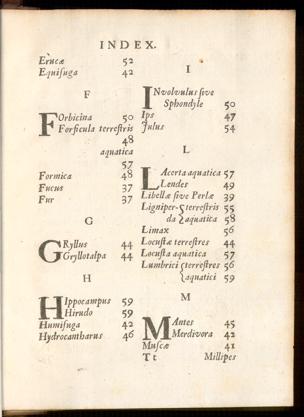 INDEX.
Erucæ 52
Equisuga 42
F
Forbicina 50
Forficula terrestris
48
aquatica
57
Formica 48
Fucus 37
Fur 37
G
GRyllus 44
Gryllotalpa 44
H
HIppocampus 59
Hirudo 59
Humisuga 42
Hydrocantharus 46
I
INvolvulus sive
Sphondyle 50
Ips 47
Julus 54
L
LAcerta aquatica 57
Lendes 49
Libellæ sive Perlæ 39
Ligniper- { terrestris 55
da { aquatica 58
Limax 56
Locustæ terrestres 44
Locusta aquatica 57
Lumbrici { terrestres 56
{ aquatici 59
M
MAntes 45
Merdivora 42
Muscæ 41
Tt Millipes